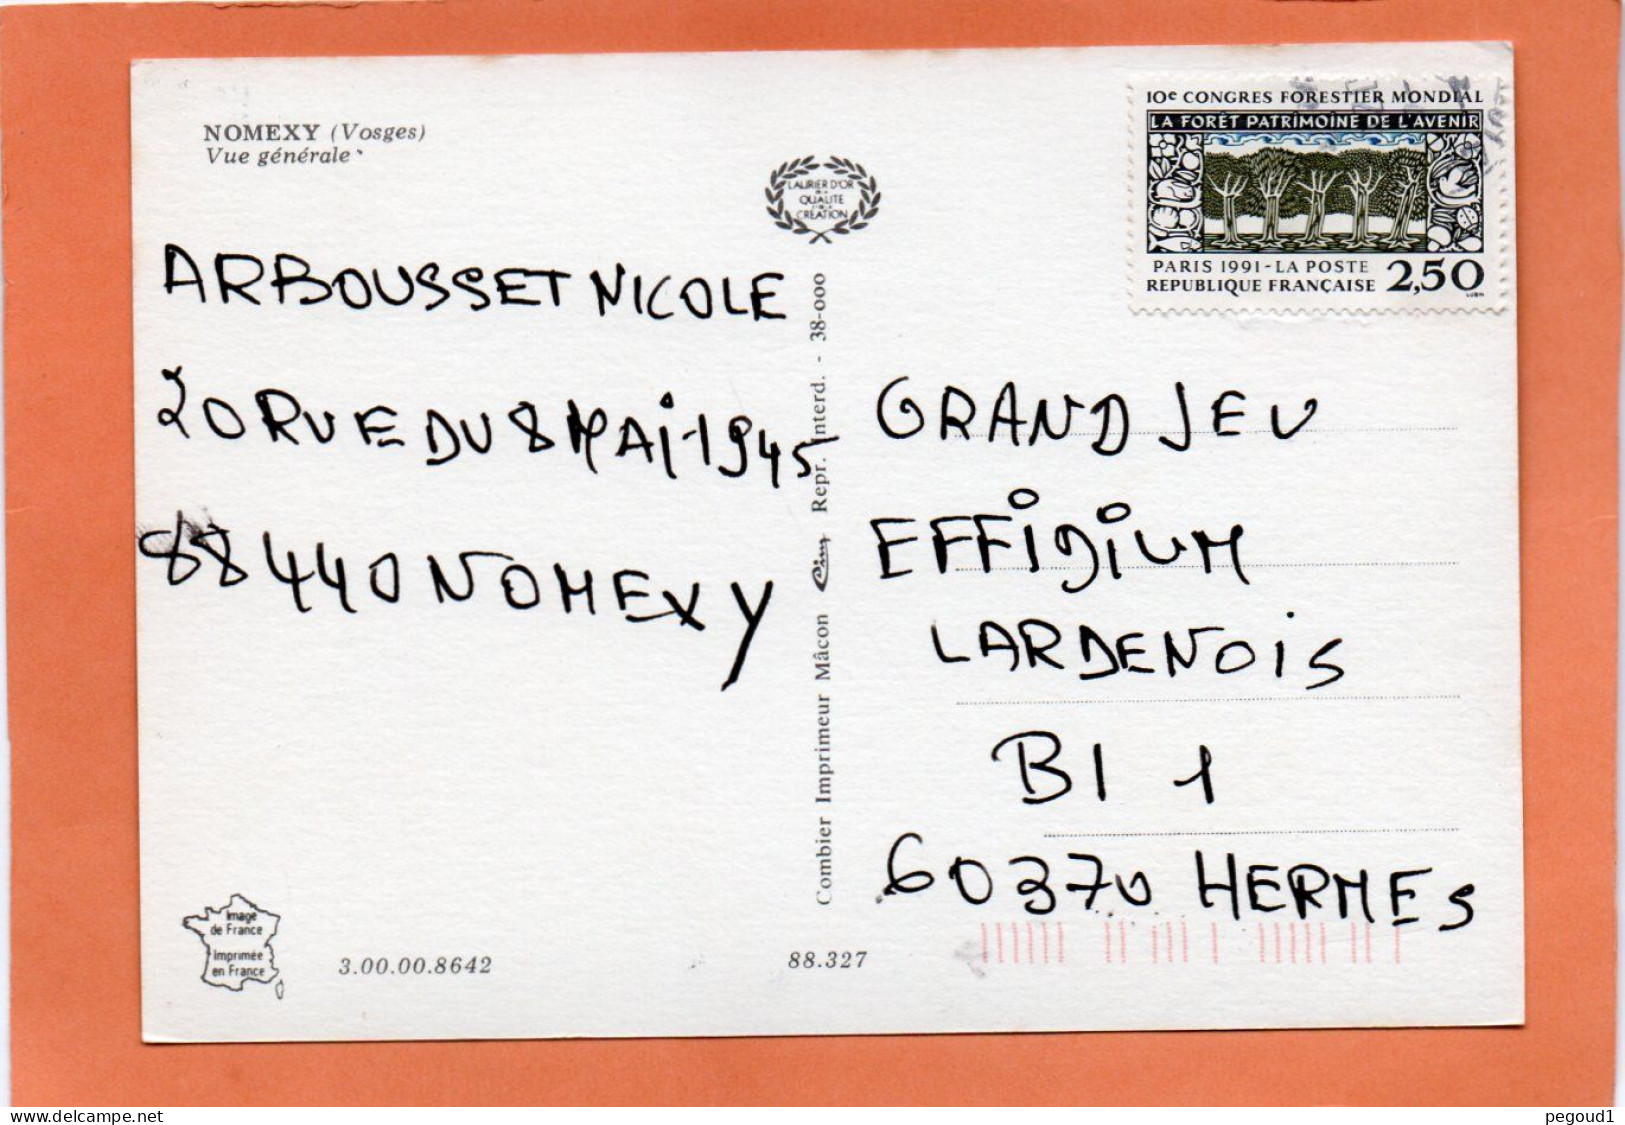 NOMEXY (Vosges)
Vue générale
LAURIER D'OR
DE LA
QUALITE
CREATION
10e CONGRES FORESTIER MONDIAL
LA FORÊT PATRIMOINE DE L'AVENIR
PARIS 1991 - LA POSTE
REPUBLIQUE FRANÇAISE 2,50
ARBOUSSET NICOLE
20 RUE DU 8 MAI 1945
88440 NOMEXY
Combier Imprimeur Mâcon Cim Repr. Interd. - 38-000
GRAND JEU
EFFIGIUM
LARDENOIS
BI 1
60370 HERMES
Image
de France
Imprimée
en France
3.00.00.8642
88.327
delcampe.net
pegoud1